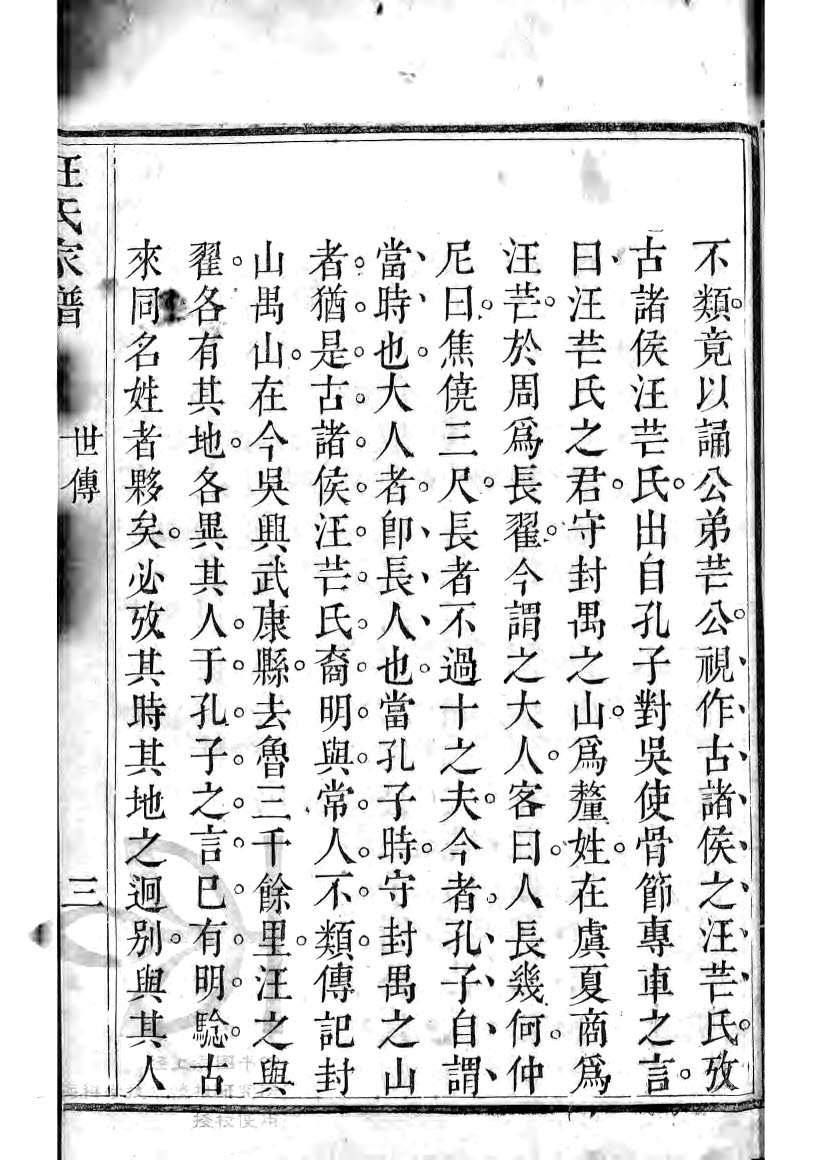 不類竟以誦公弟芒公視作古諸侯之汪芒氏攷
古諸侯汪芒氏出自孔子對吳使骨節專車之言
曰汪芒氏之君守封禺之山爲釐姓在虞夏商爲
汪芒於周爲長翟今謂之大人客曰人長幾何仲
尼曰焦僥三尺長者不過十之夫今者孔子自謂
當時也大人者卽長人也當孔子時守封禺之山
者猶是古諸侯汪芒氏裔明與常人不類傳記封
山禺山在今吳興武康縣去魯三千餘里汪之與
翟各有其地各異其人于孔子之言已有明騐古
來同名姓者夥矣必攷其時其地之迥别與其人
汪氏家譜
世傳
三